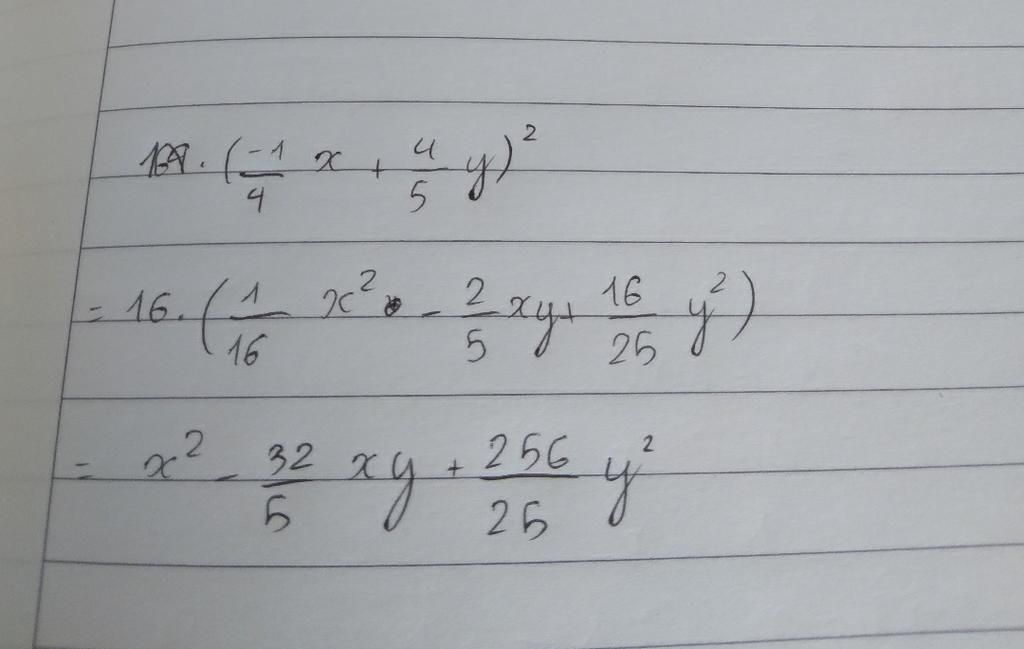 . (-1/4 x + 4/5 y)²
= 16. (1/16 x² - 2/5 xy + 16/25 y²)
= x² - 32/5 xy + 256/25 y²